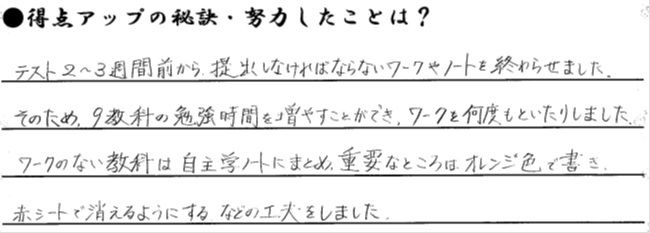 ●得点アップの秘訣・努力したことは？
テスト2～3週間前から、提出しなければならないワークやノートを終わらせました。
そのため、9教科の勉強時間を増やすことができ、ワークを何度もといたりしました。
ワークのない教科は自主学ノートにまとめ、重要なところはオレンジ色で書き、
赤シートで消えるようにするなどの工夫をしました。